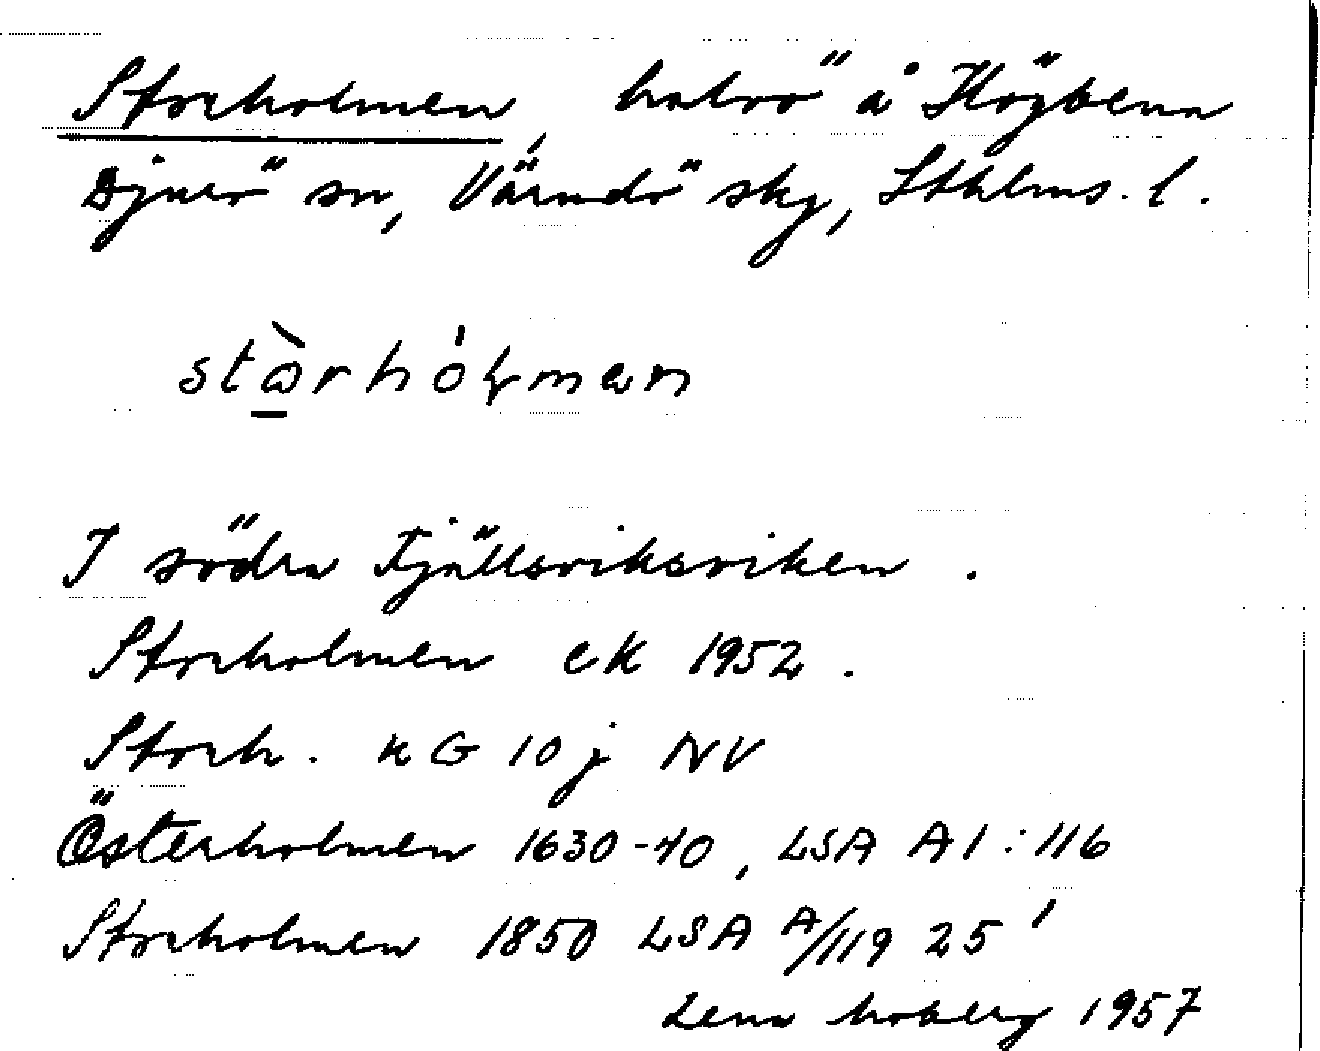 Storholmen, halvö å Högbena
Djurö sn, Värmdö sky, Sthlms. l.
stàrhólman
I södra Fjällsviksviken.
Storholmen ek 1952.
Storh. KG 10 j NV
Österholmen 1630-40, LSA A1:116
Storholmen 1850 LSA A/119 25 1
Lena Moberg 1957